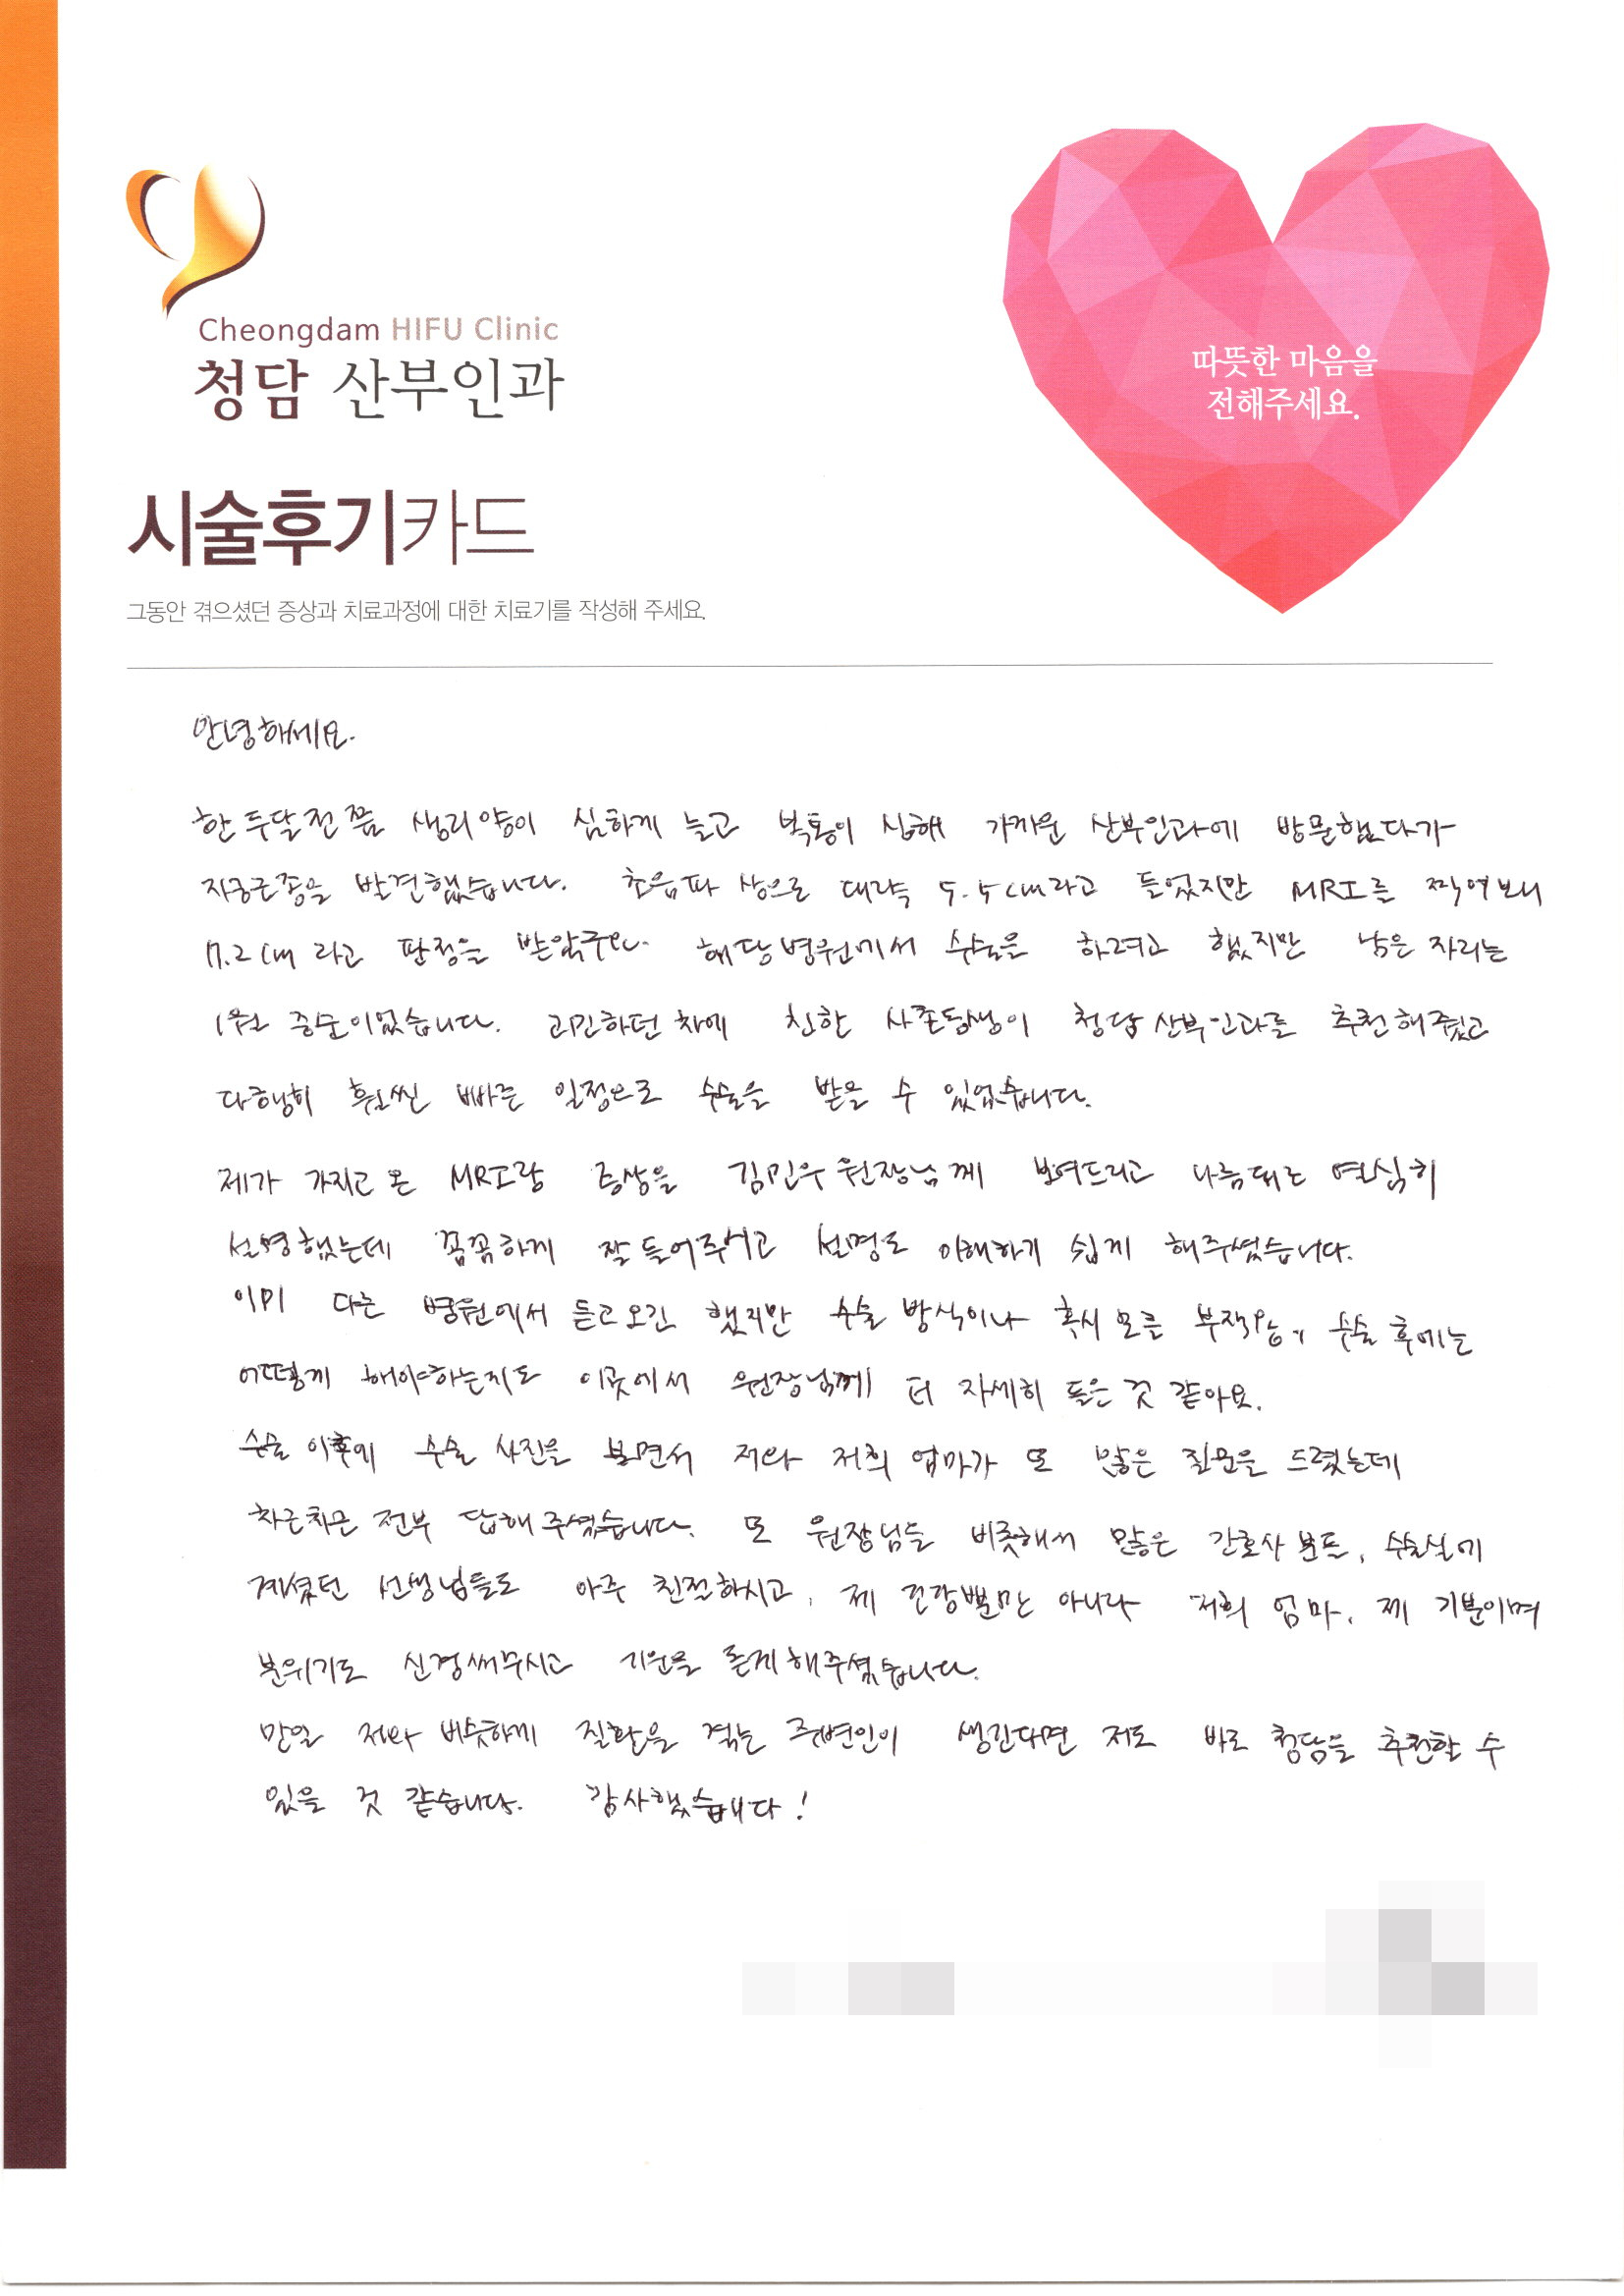 Cheongdam HIFU Clinic
청담 산부인과
따뜻한 마음을
전해주세요.
시술후기카드
그동안 겪으셨던 증상과 치료과정에 대한 치료기를 작성해 주세요.
안녕하세요.
한 두달 전쯤 생리양이 심하게 늘고 복통이 심해 가까운 산부인과에 방문했다가
자궁근종을 발견했습니다. 초음파 상으로 대략 5.5cm라고 들었지만 MRI를 찍어보니
7.2cm 라고 판정을 받았구요. 해당병원에서 수술을 하려고 했지만 남은 자리는
1월 중순이었습니다. 고민하던 차에 친한 사촌동생이 청담산부인과를 추천해줬고
다행히 훨씬 빠른 일정으로 수술을 받을 수 있었습니다.
제가 가지고 온 MRI랑 증상을 김민우 원장님께 보여드리고 나름대로 열심히
설명했는데 꼼꼼하게 잘 들어주시고 설명도 이해하기 쉽게 해주셨습니다.
이미 다른 병원에서 듣고 오긴 했지만 수술 방식이나 혹시 모를 부작용, 수술 후에는
어떻게 해야하는지도 이곳에서 원장님께 더 자세히 들은 것 같아요.
수술 이후에 수술 사진을 보면서 저와 저희 엄마가 또 많은 질문을 드렸는데
차근차근 전부 답해주셨습니다. 또 원장님들 비롯해서 많은 간호사 분들, 수술실에
계셨던 선생님들도 아주 친절하시고, 제 건강뿐만 아니라 저희 엄마, 제 기분이며
분위기도 신경써주시고 기운을 돋게 해주셨습니다.
만일 저와 비슷하게 질환을 겪는 주변인이 생긴다면 저도 바로 청담을 추천할 수
있을 것 같습니다. 감사했습니다!